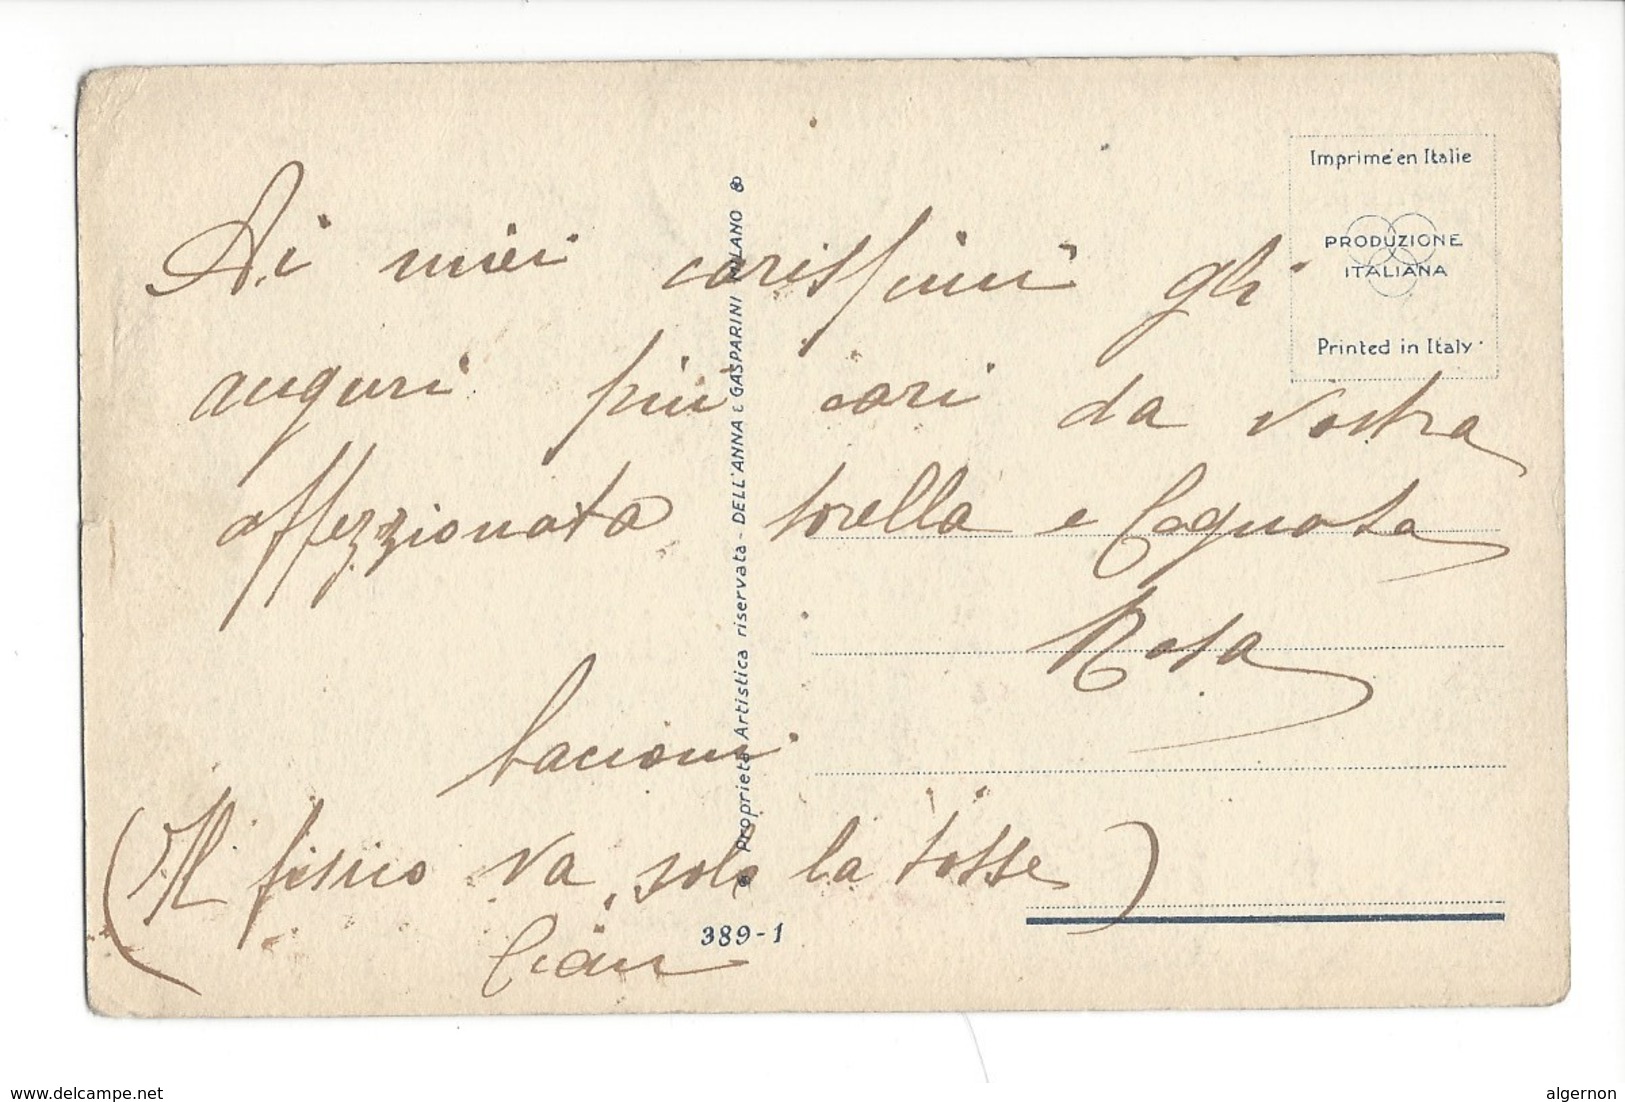 Imprimé en Italie
PRODUZIONE
ITALIANA
Printed in Italy
Ai miei carissimi gli
auguri più cari da vostra
affezzionata sorella e Cognata
Rosa
bacioni
(Il fisico va, solo la tosse)
Proprietà Artistica riservata - DELL'ANNA E GASPARINI MILANO
389-1
delcampe.net
algernon